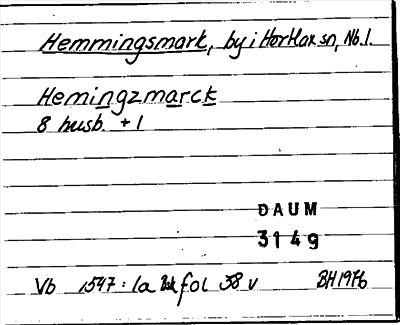 Hemmingsmark, by i Hortlax sn, Nb.l.
Hemingzmarck
8 husb. + 1
DAUM
3149
Vb 1547: 1a fol 38 v BH 1976